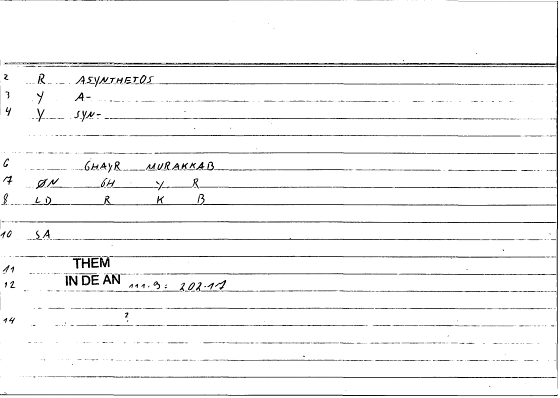 2 R ASYNTHETOS
3 Y A-
4 Y SYN-
6 GHAYR MURAKKAB
7 ØN GH Y R
8 LD R K B
10 SA
11 THEM
12 IN DE AN 111.9: 202.17
14 ?